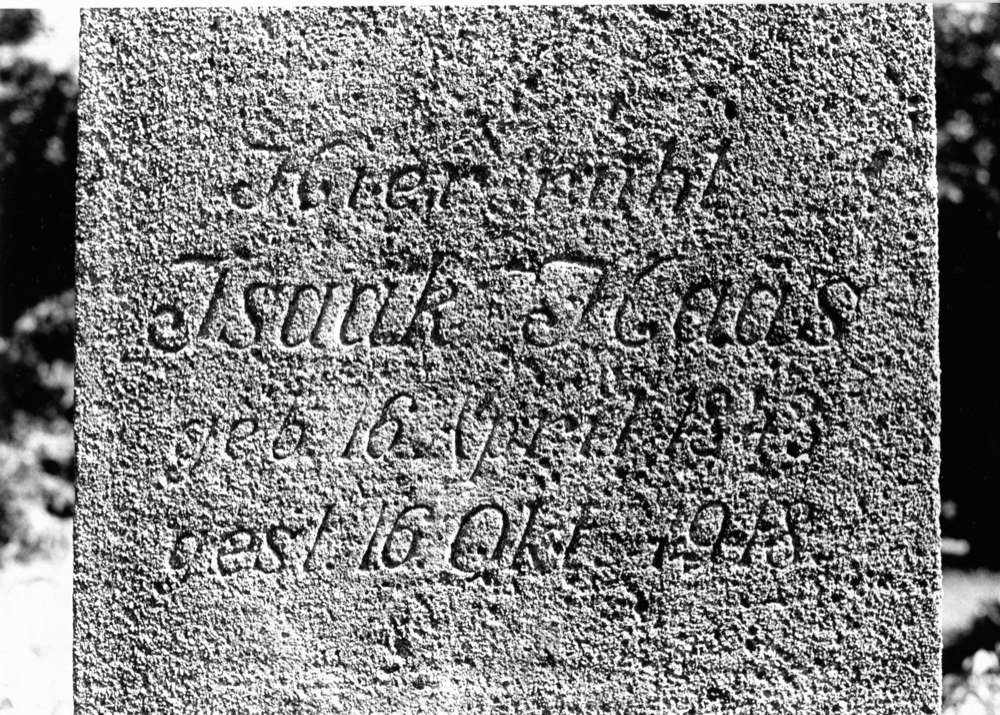 Hier ruht
Isaak Haas
geb. 16. April 1843
gest. 16. Okt. 1918